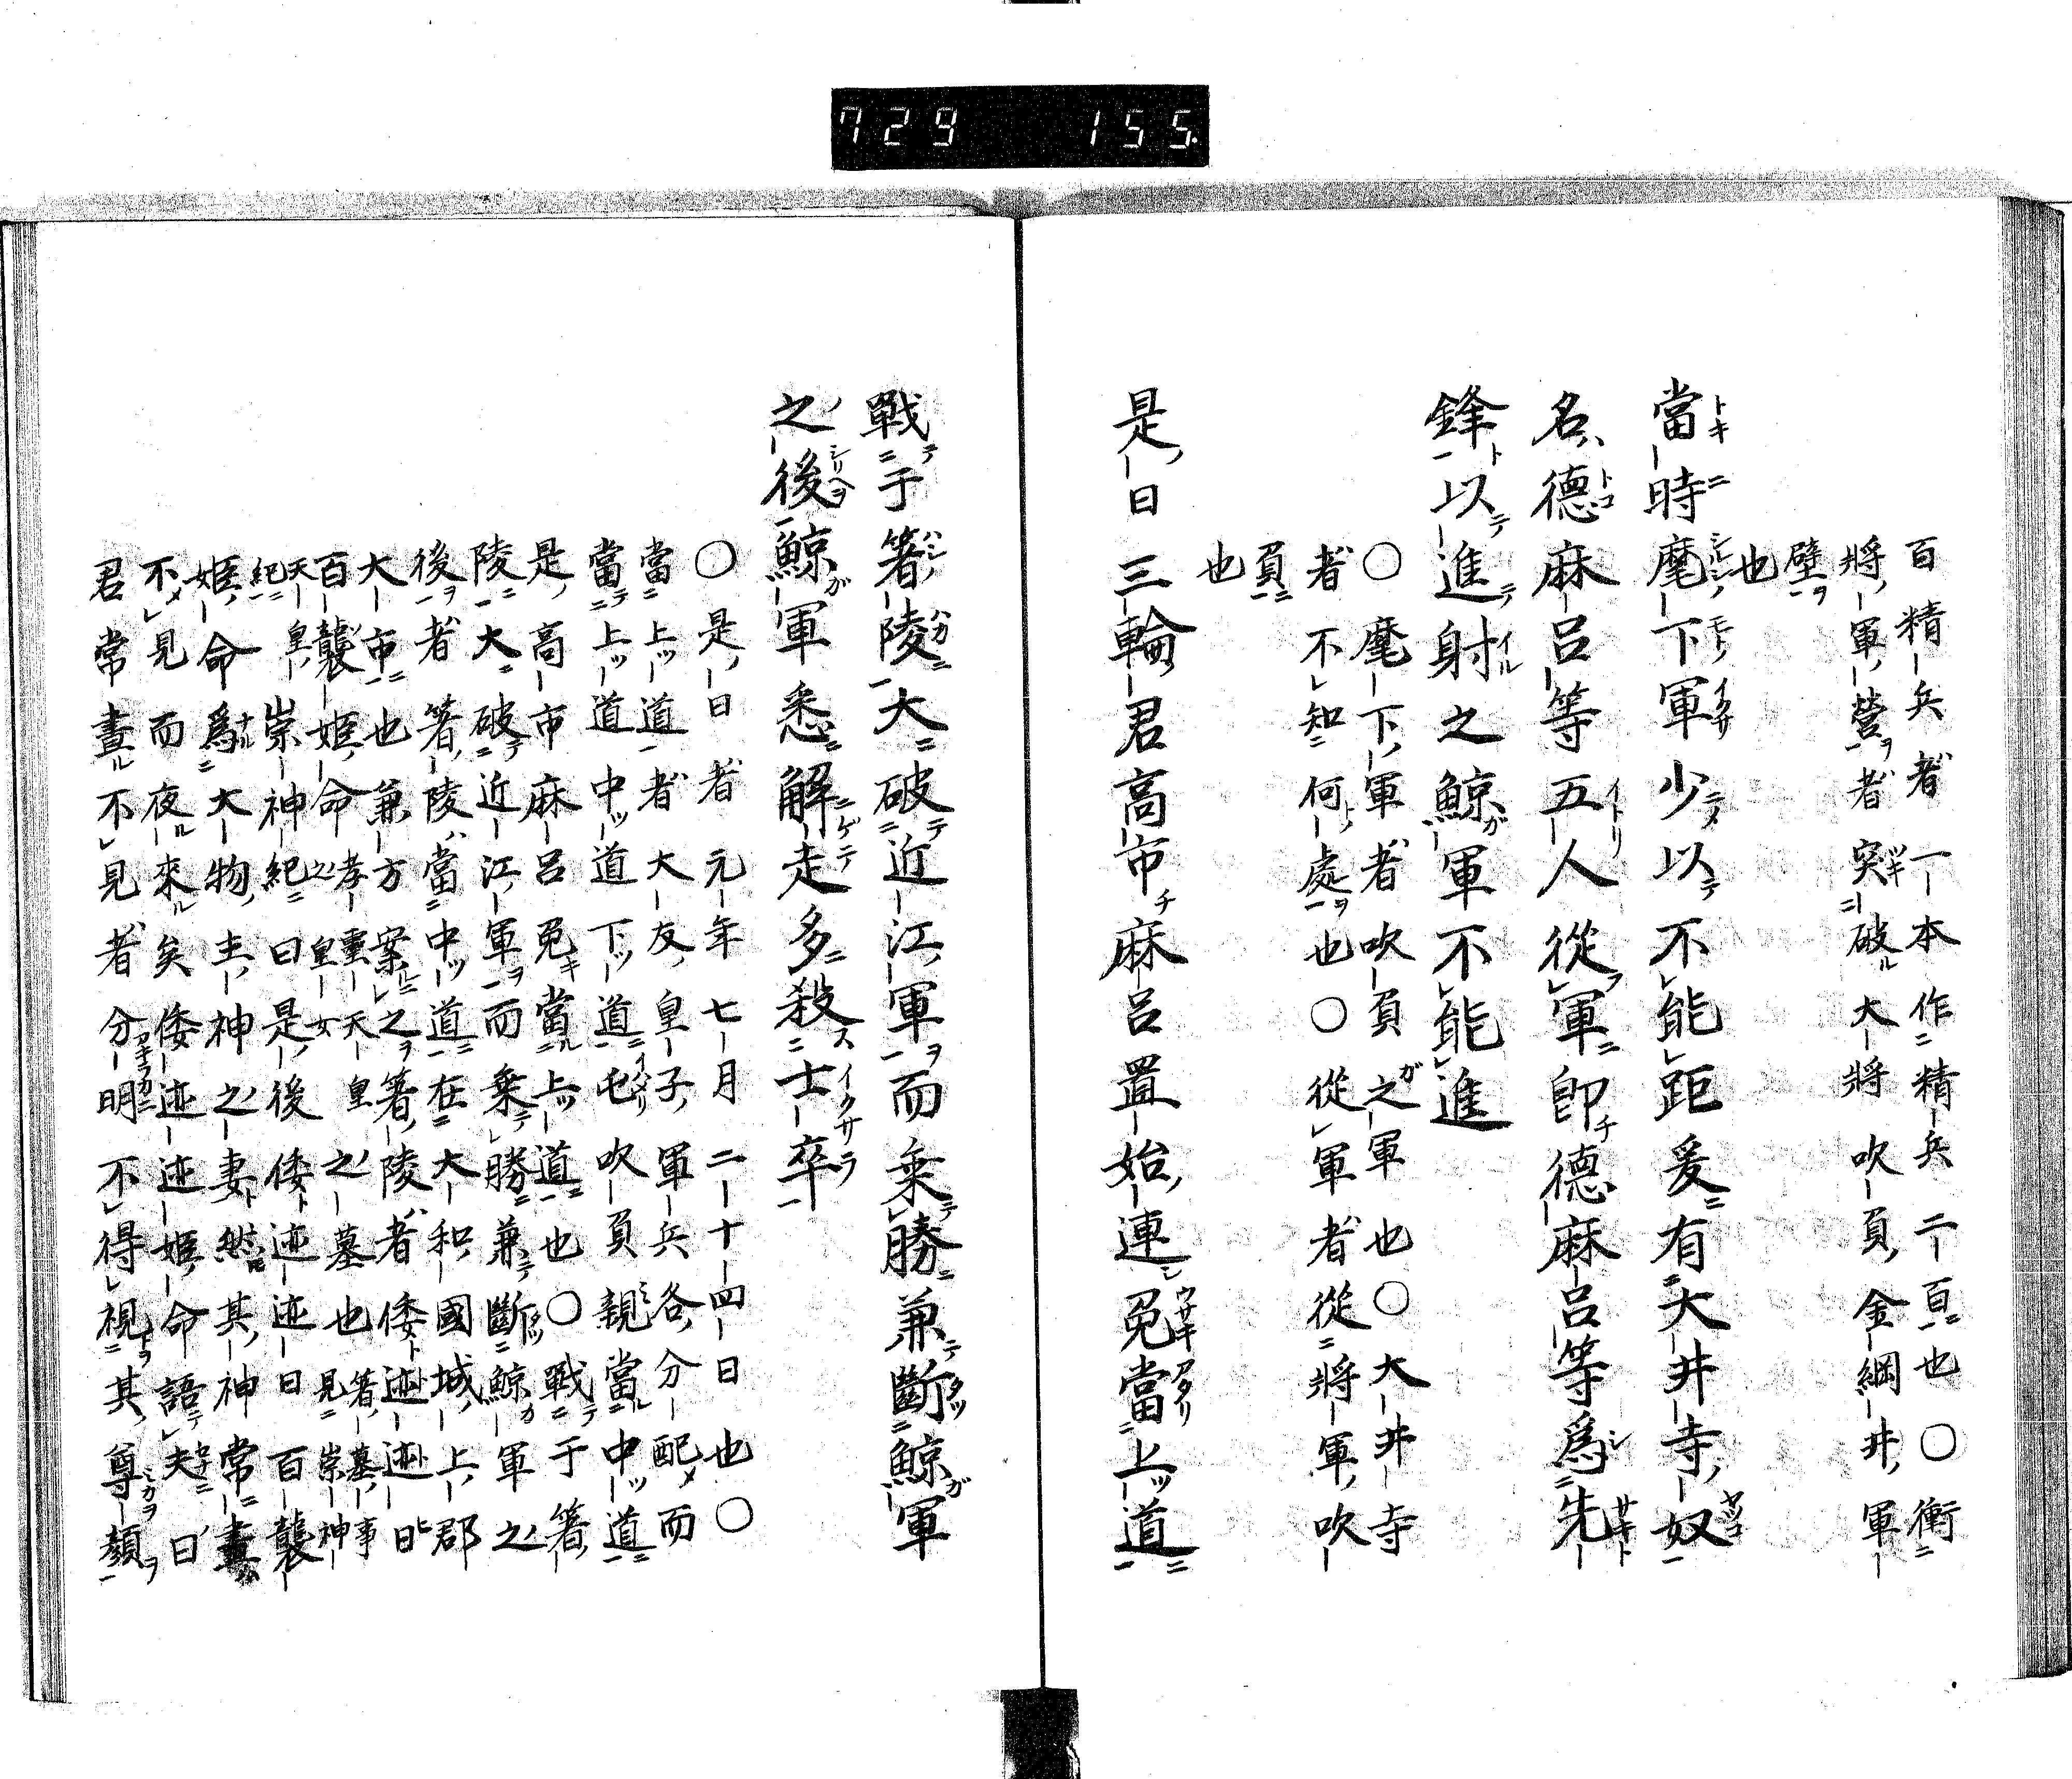 729 155.
百精兵者一本作精兵二百也〇衝
將軍營者突破大將吹負金綱井軍
壁
也
當時麾下軍少以不能距爰有大井寺奴
名德麻呂等五人從軍即德麻呂等爲先
鋒以進射之鯨軍不能進
〇麾下軍者吹負之軍也〇大井寺
者不知何處也〇從軍者從將軍吹
負
也
是日三輪君高市麻呂置始連菟當上道
戰于箸陵大破近江軍而乘勝兼斷鯨軍
之後鯨軍悉解走多殺士卒
〇是日者元年七月二十四日也〇
當上道者大友皇子軍兵各分配而
當上道中道下道屯吹負親當中道
是高市麻呂菟當上道也〇戰于箸
陵大破近江軍而乘勝兼斷鯨軍之
後者箸陵當中道在大和國城上郡
大市也兼方案之箸陵者倭迹迹日
百襲姬命孝靈天皇之皇女之墓也箸墓事見崇神
天皇紀崇神紀曰是後倭迹迹日百襲
姬命爲大物主神之妻然其神常晝
不見而夜來矣倭迹迹姬命語夫曰
君常晝不見者分明不得視其尊顏